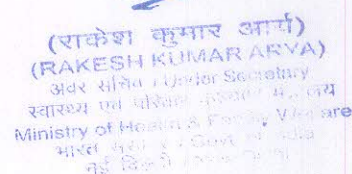 (राकेश कुमार आर्य)
(RAKESH KUMAR ARYA)
अवर सचिव / Under Secretary
स्वास्थ्य एवं परिवार कल्याण मंत्रालय
Ministry of Health & Family Welfare
भारत सरकार / Govt. of India
नई दिल्ली